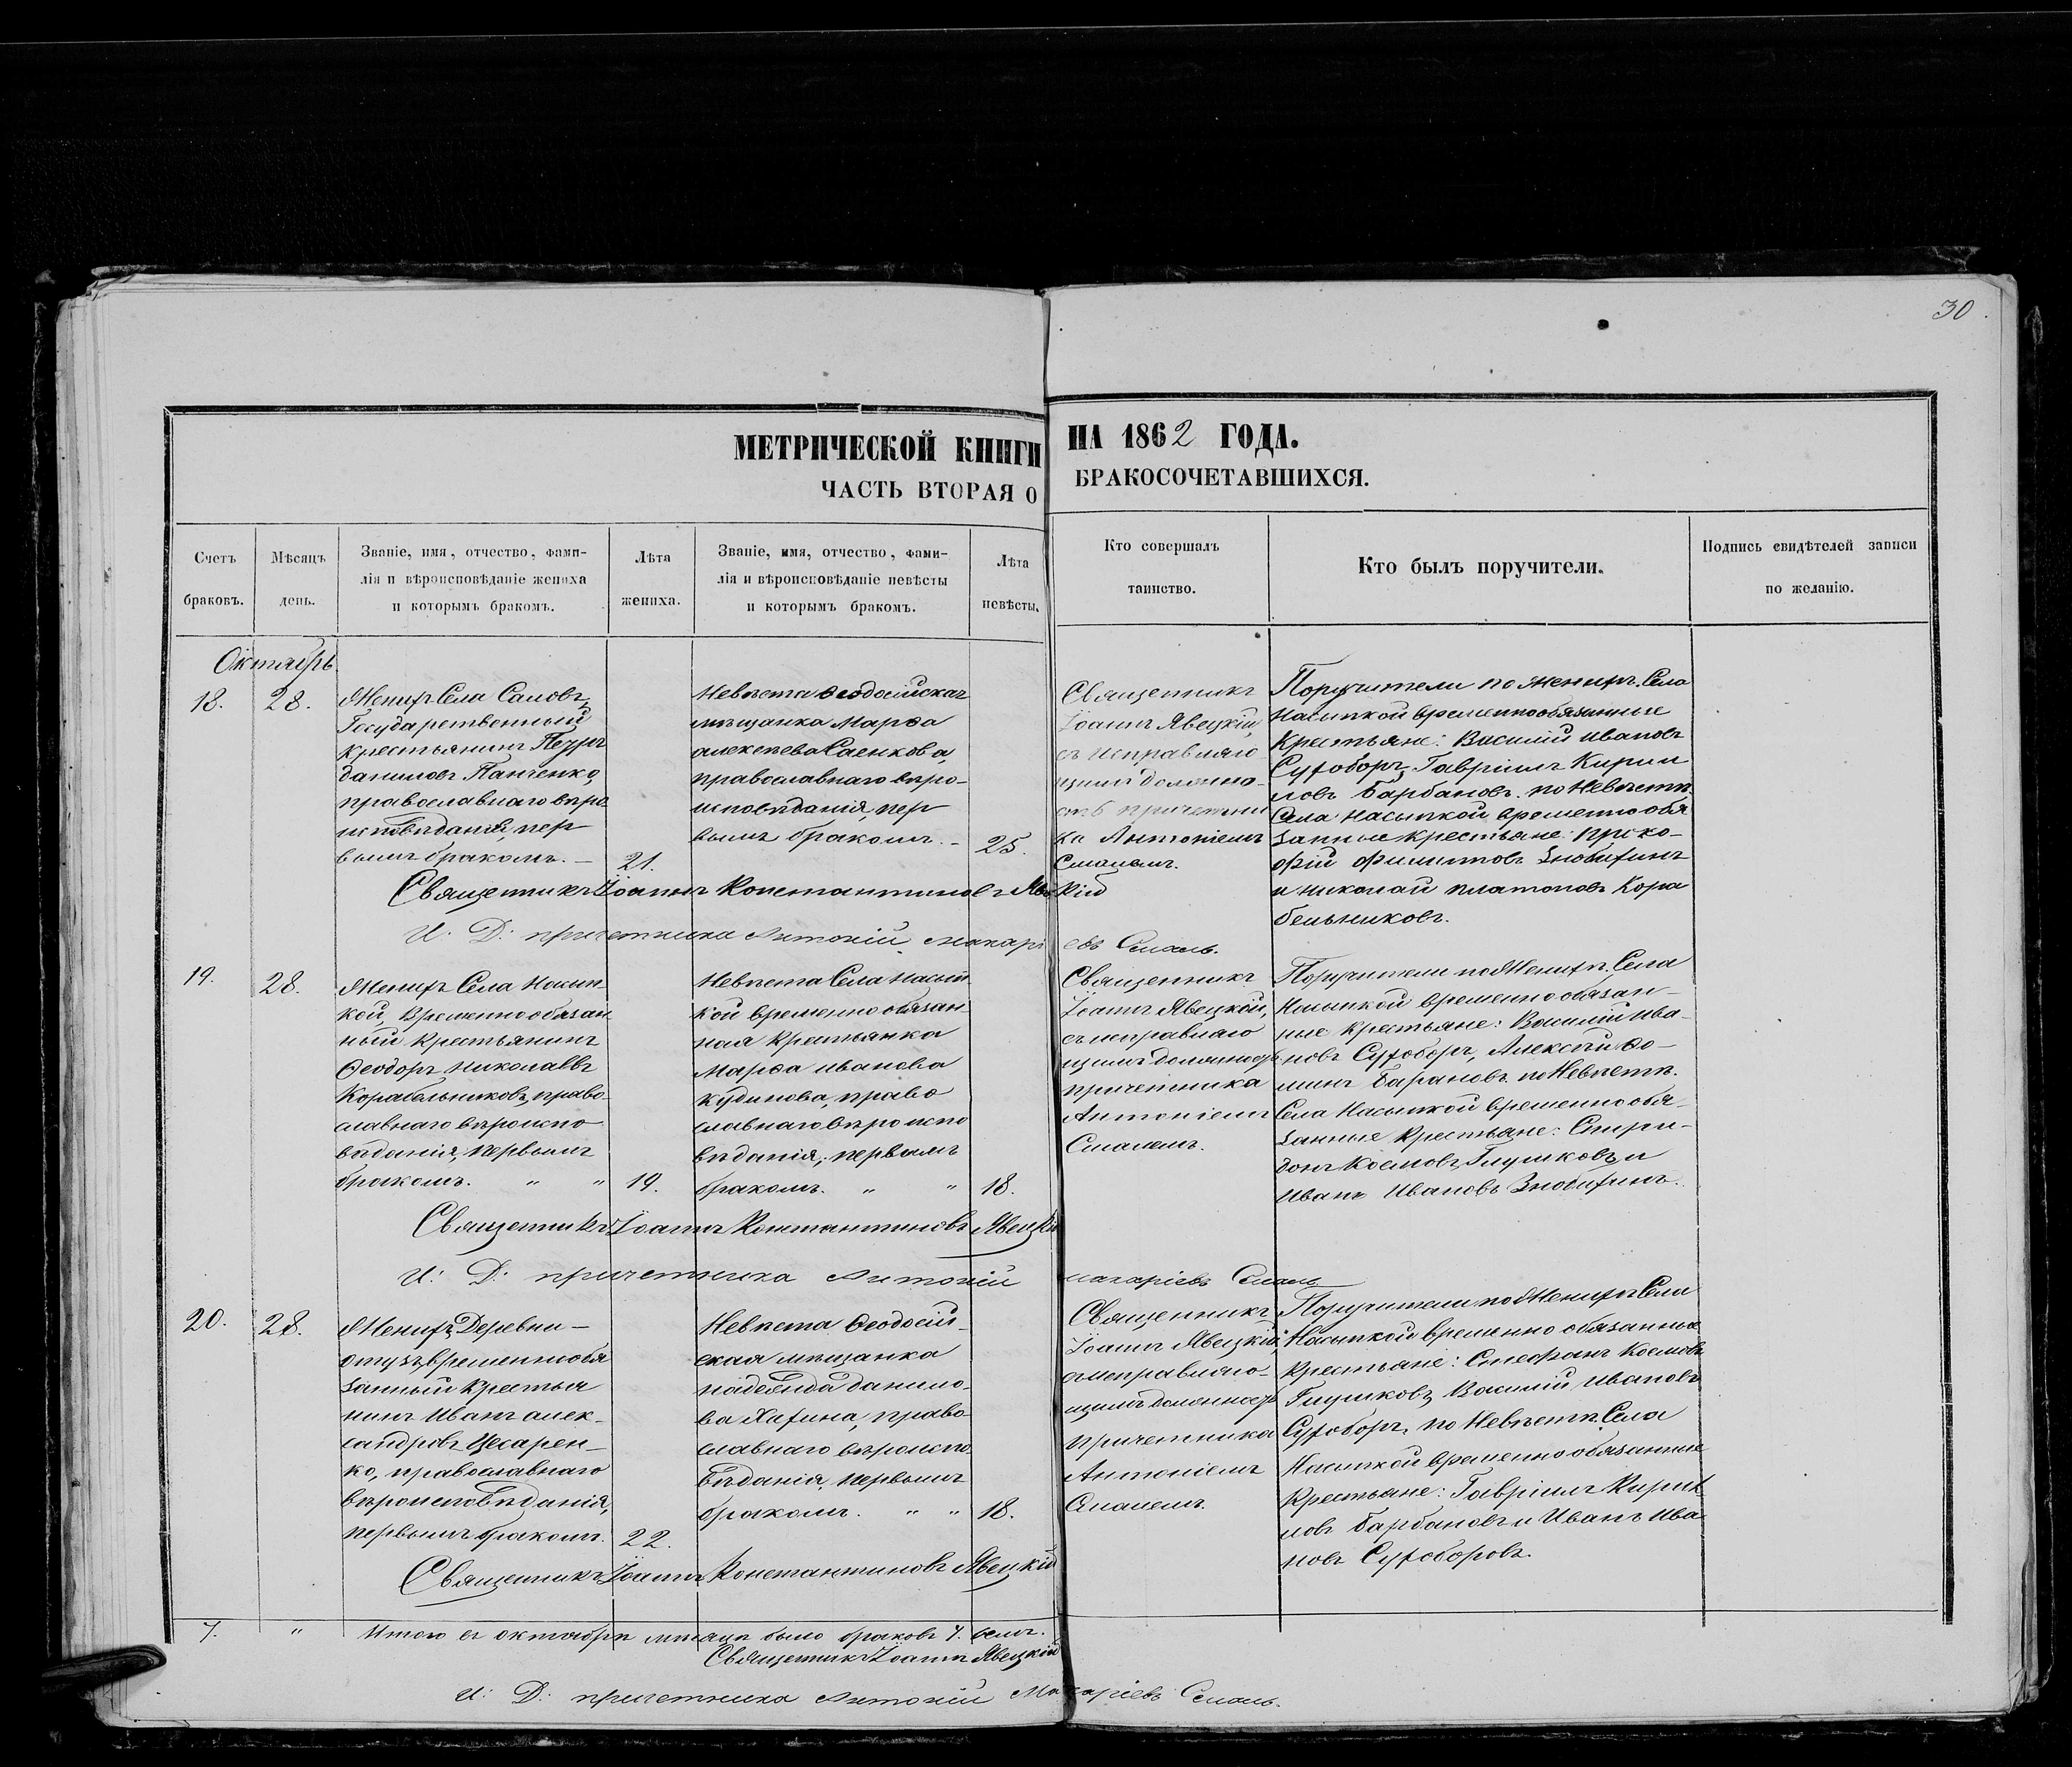 30
МЕТРИЧЕСКОЙ КНИГИ НА 1862 ГОДА.
ЧАСТЬ ВТОРАЯ О БРАКОСОЧЕТАВШИХСЯ.
Счетъ браковъ.
Мѣсяцъ день.
Званіе, имя, отчество, фами-
лія и вѣроисповѣданіе жениха
и которымъ бракомъ.
Лѣта жениха.
Званіе, имя, отчество, фами-
лія и вѣроисповѣданіе невѣсты
и которымъ бракомъ.
Лѣта невѣсты.
Кто совершалъ
таинство.
Кто былъ поручители.
Подпись свидѣтелей записи
по желанію.
Октябрь
18.
28.
Женихъ Села Саловъ
Государственный
Крестьянинъ Петръ
даниловъ Панченко,
православнаго вѣро
исповѣданія, пер
вымъ бракомъ. –
21.
Невѣста Ѳеодосійская
мѣщанка Марѳа
алексѣева Саенкова,
православнаго вѣро-
исповѣданія, пер
вымъ бракомъ. –
25.
Священникъ
Іоаннъ Явецкій,
съ исправляю
щимъ должно-
сть причетни
ка Антоніемъ
Смалемъ.
Поручители по Женихѣ. Села
Насыпкой временнообязанные
Крестьяне: Василій ивановъ
Сухоборъ, Гавріилъ Кирил
ловъ Барбановъ. по Невѣстѣ
Села насыпкой временнообя
занные крестьяне: Проко-
фій филиповъ Знобихинъ
и николай платоновъ Кора
бельниковъ.
Священникъ Іоаннъ Константиновъ Явецкій
И: Д: причетника Антоній макаріевъ Смаль.
19.
28.
Женихъ Села Насып-
кой, Временнообязан
ный Крестьянинъ
Ѳеодоръ николаевъ
Корабельниковъ, право-
славнаго вѣроиспо-
вѣданія, первымъ
бракомъ. " "
19.
Невѣста Села Насып
кой временно обязан-
ная Крестьянка
Марѳа иванова
кудинова, право
славнаго вѣроиспо
вѣданія, первымъ
бракомъ. " "
18.
Священникъ
Іоаннъ Явецкій,
съ исправляю
щимъ должность
причетника
Антоніемъ
Смалемъ.
Поручители по Женихѣ. Села
Насыпкой временно обязан-
ные крестьяне: Василій ива-
новъ Сухоборъ, Алексѣй Ѳо-
минъ Барановъ. по Невѣстѣ.
Села Насыпкой временнообя-
занные Крестьяне: Спири-
донъ Космовъ Глушковъ и
иванъ Ивановъ Знобихинъ.
Священникъ Іоаннъ Константиновъ Явецкій
И: Д: причетника Антоній макаріевъ Смаль
20.
28.
Женихъ Деревни –
отузъ временнообя
занный Крестья
нинъ Иванъ алек-
сандровъ Цесарен-
ко, православнаго
вѣроисповѣданія,
первымъ бракомъ.
22.
Невѣста Ѳеодосій-
ская мѣщанка
надежда данило-
ва Хихина, право-
славнаго вѣроиспо-
вѣданія, первымъ
бракомъ. " "
18.
Священникъ
Іоаннъ Явецкій,
съ исправляю-
щимъ должность
причетника
Антоніемъ
Смалемъ.
Поручители по Женихѣ Села
Насыпкой временно обязанные
Крестьяне: Стефанъ Космовъ
Глушковъ, Василій ивановъ
Сухоборъ, по Невѣстѣ. Села
Насыпкой временно обязанные
Крестьяне: Гавріилъ Кирил-
ловъ Барбановъ и Иванъ Ива
новъ Сухоборовъ.
Священникъ Іоаннъ Константиновъ Явецкій
7. " Итого въ октябрѣ мѣсяцѣ было браковъ 7. семь.
Священникъ Іоаннъ Явецкій
И: Д: причетника Антоній Макаріевъ Смаль.